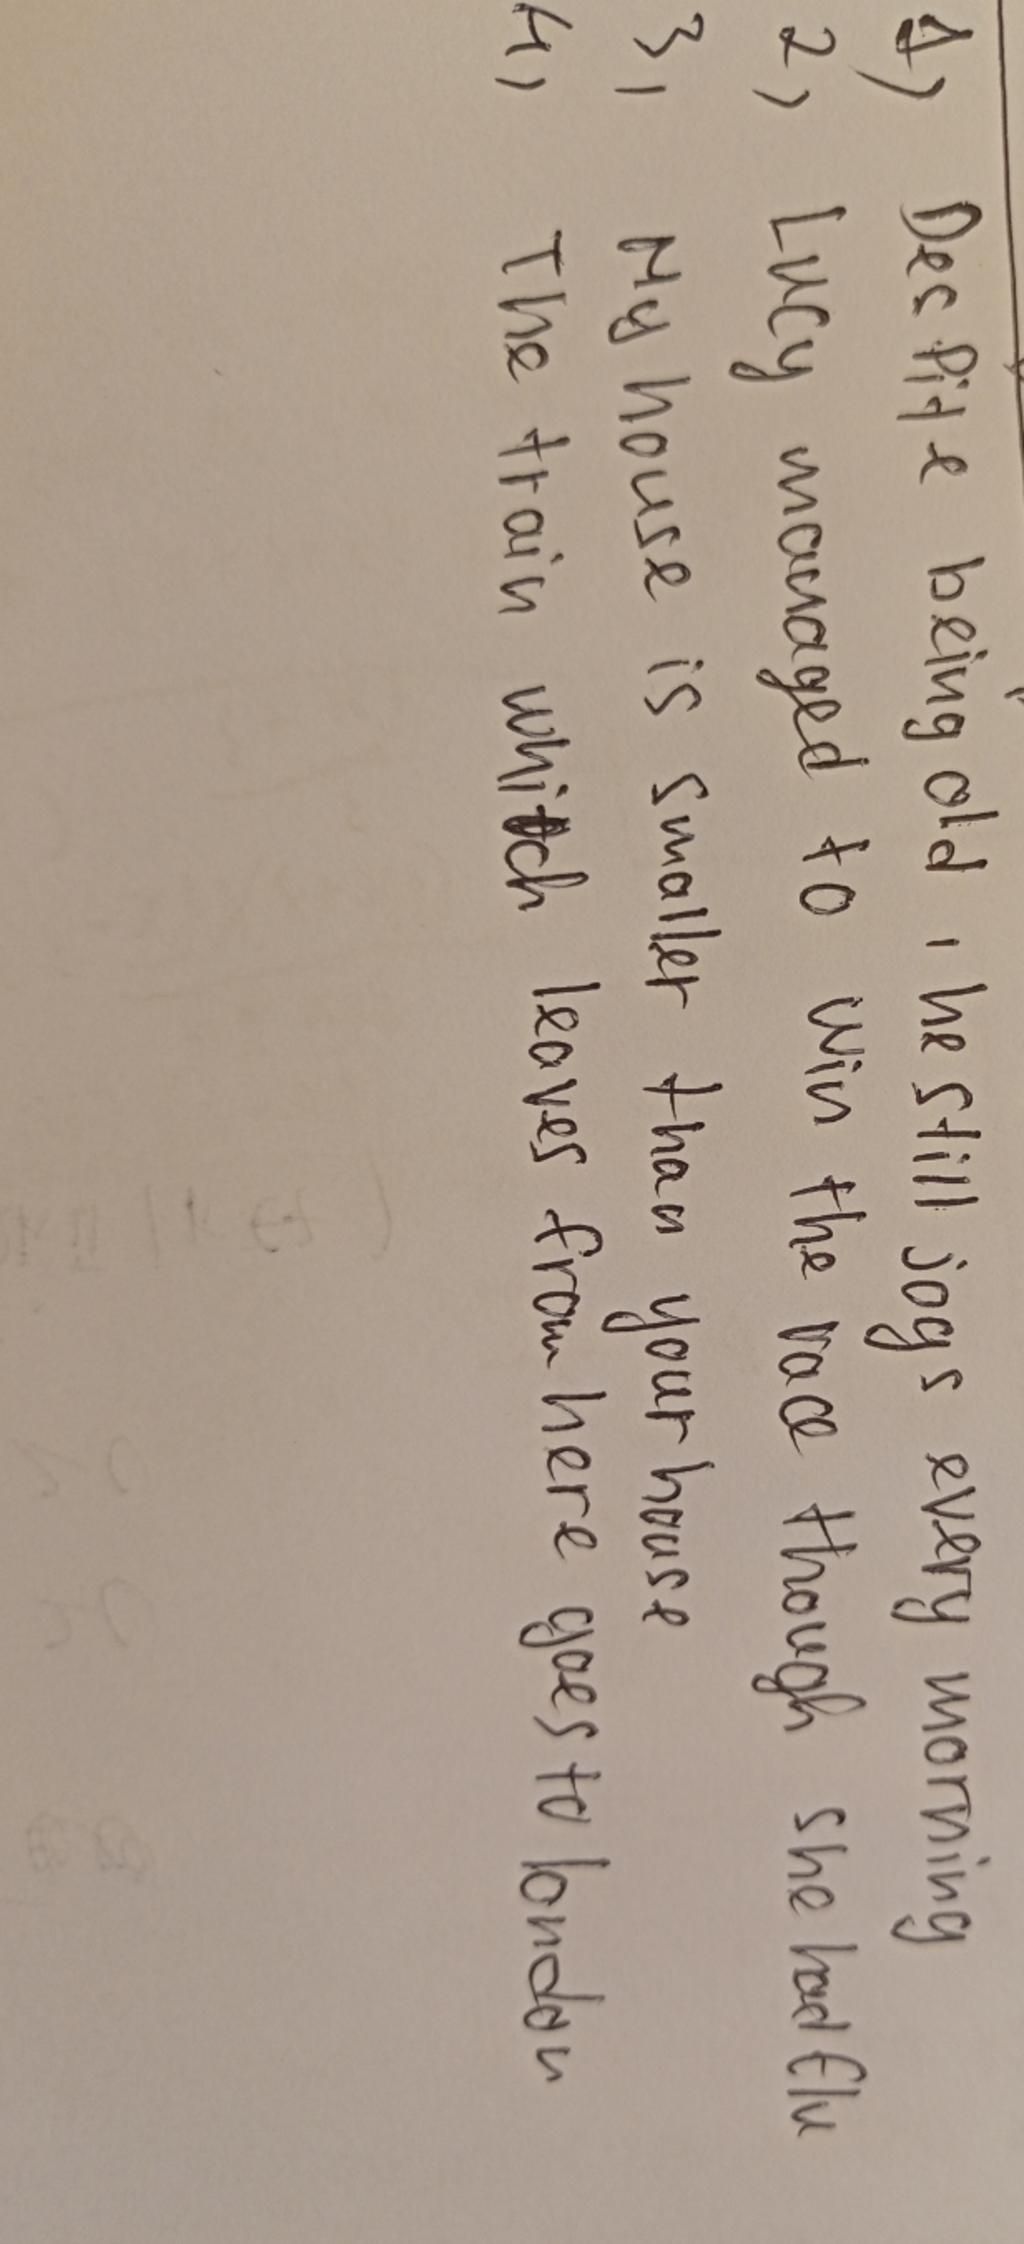 1) Despite being old, he still jogs every morning
2) Lucy managed to win the race though she had flu
3, My house is smaller than your house
4, The train which leaves from here goes to london